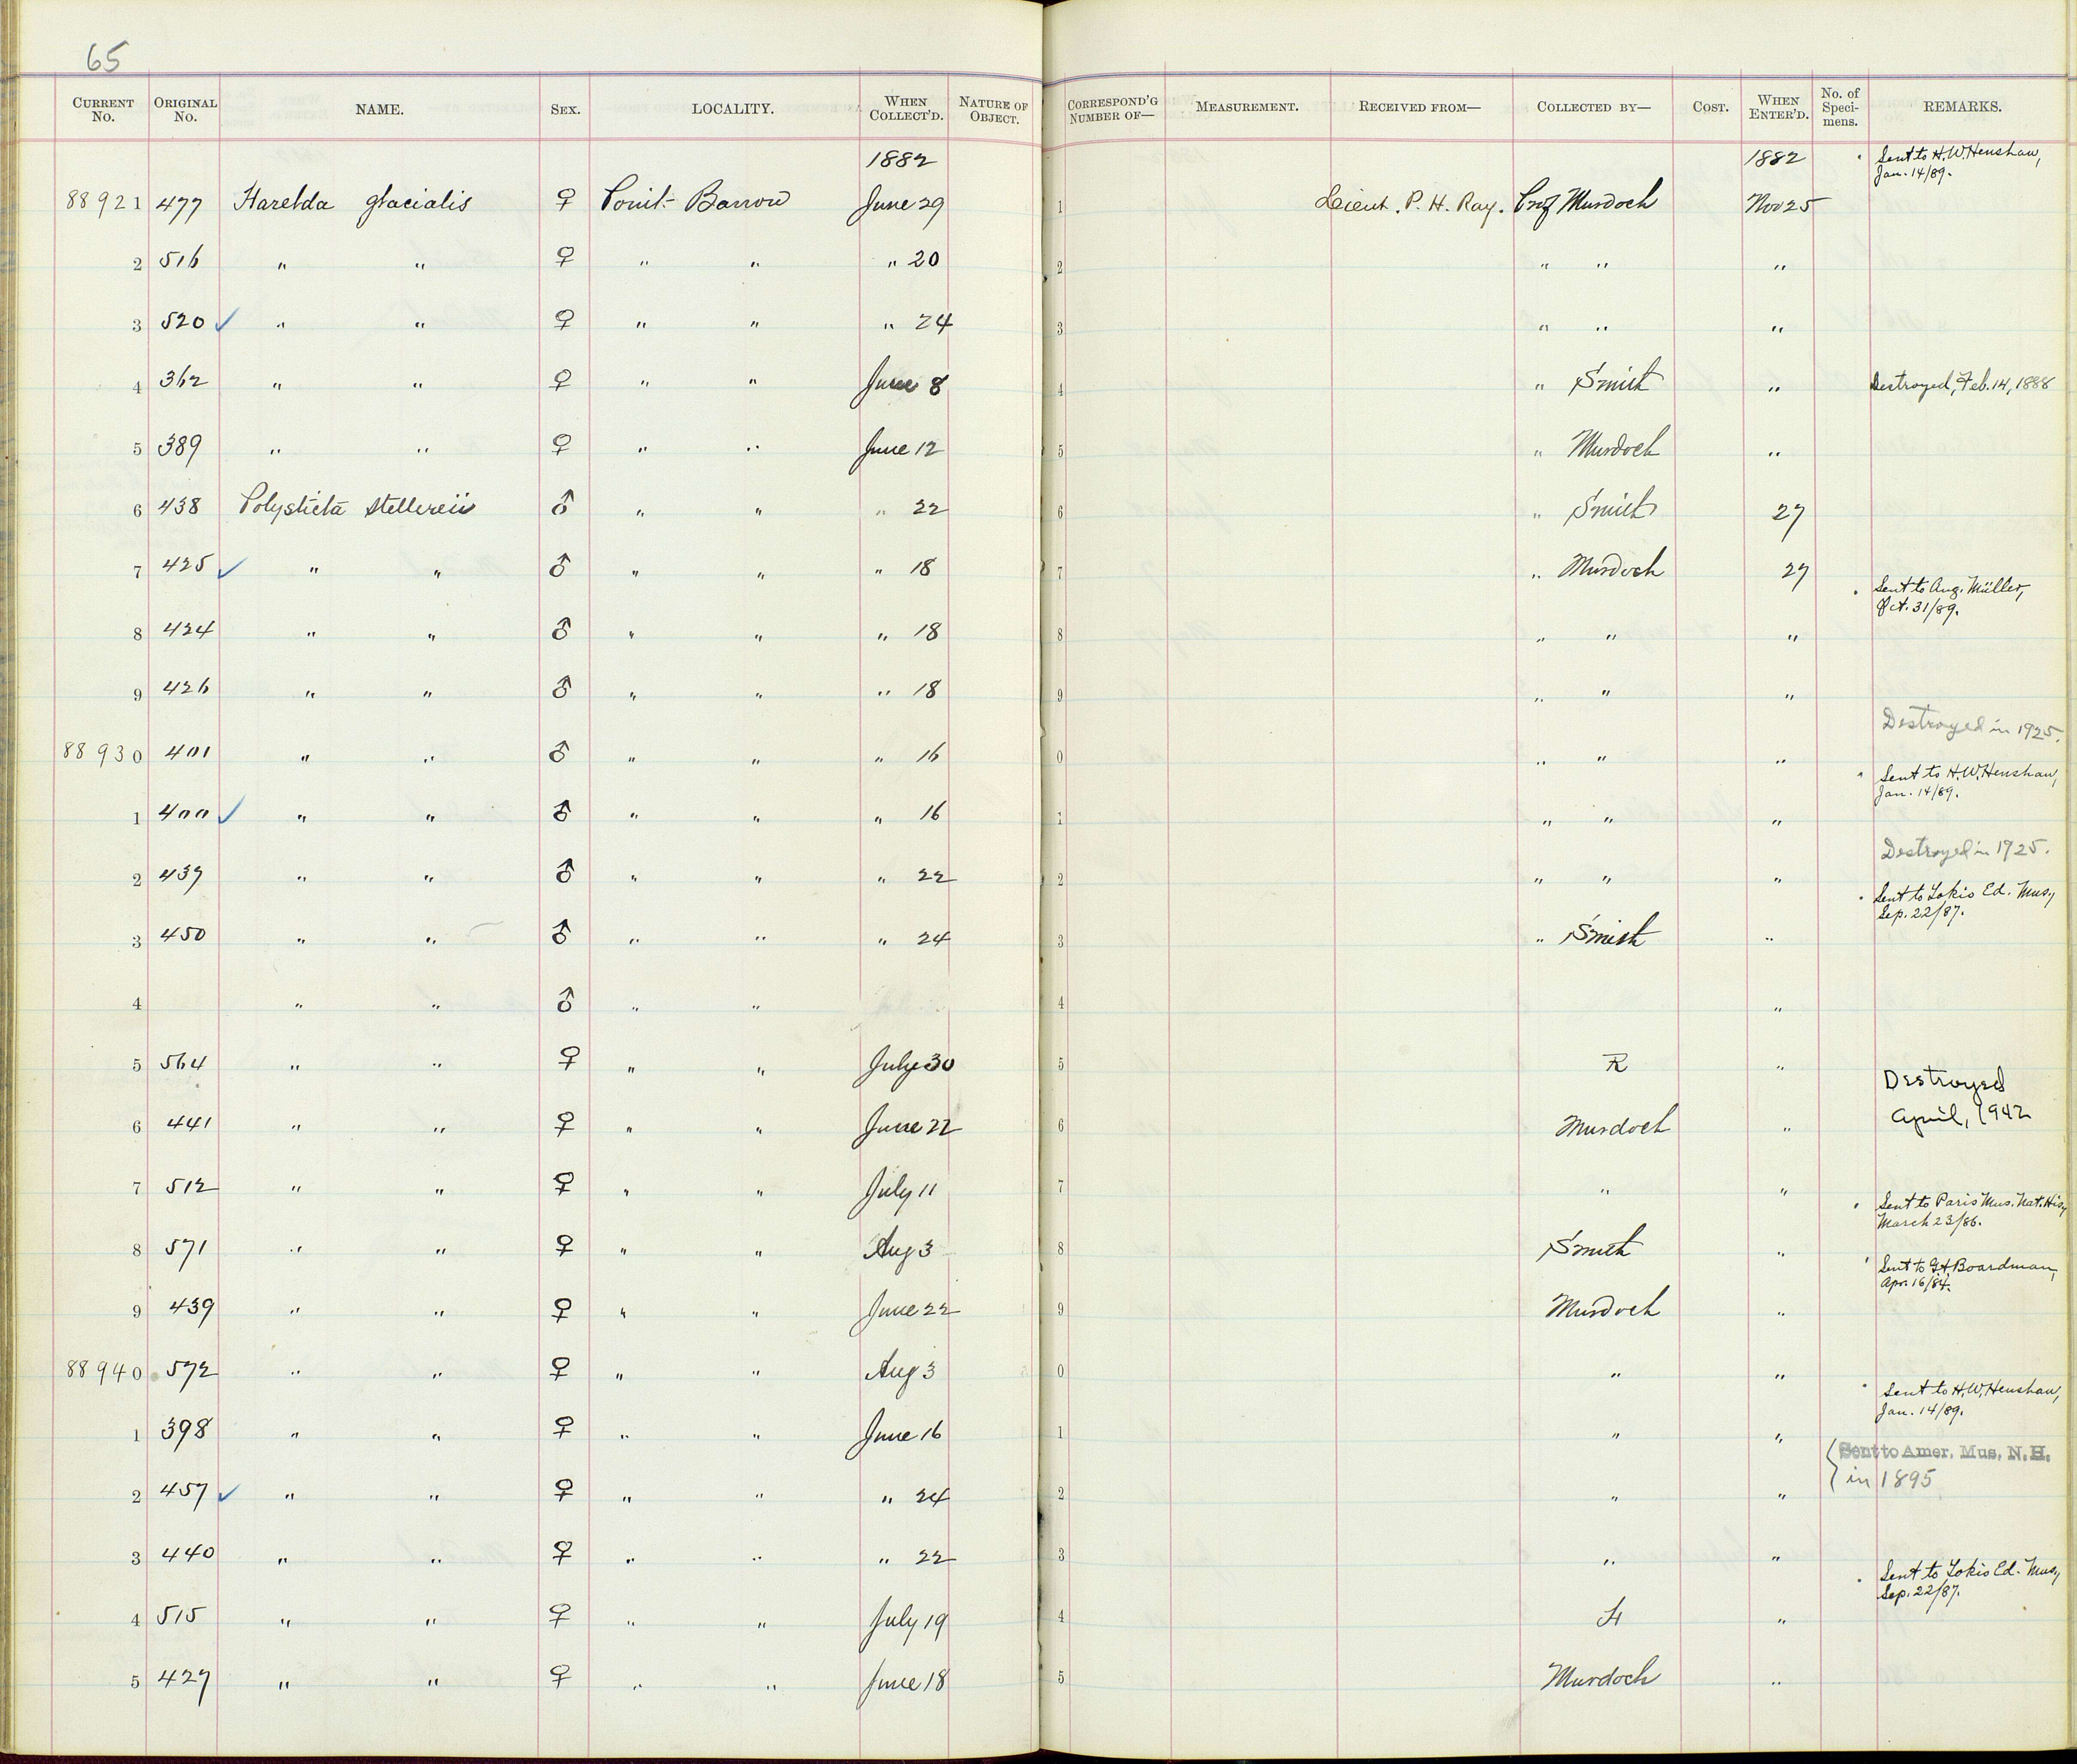 65
CURRENT No. ORIGINAL No. NAME. SEX. LOCALITY. WHEN COLLECT'D. NATURE OF OBJECT. CORRESPOND'G NUMBER OF— MEASUREMENT. RECEIVED FROM— COLLECTED BY— COST. WHEN ENTER'D. No. of Speci-mens. REMARKS.
1882 1882 Sent to H.W. Henshaw,
Jan. 14/89.
88921 477 Harelda glacialis ♀ Point Barrow June 29 1 Lieut. P. H. Ray. Prof Murdoch Nov 25
2 516 " " ♀ " " " 20 2 " " "
3 520 ✓ " " ♀ " " " 24 3 " " "
4 362 " " ♀ " " June 8 4 " Smith " Destroyed, Feb. 14, 1888
5 389 " " ♀ " " June 12 5 " Murdoch "
6 438 Polysticta stellerii ♂ " " " 22 6 " Smith 27
7 425 ✓ " " ♂ " " " 18 7 " Murdoch 27
Sent to Aug. Müller,
Oct. 31/89.
8 424 " " ♂ " " " 18 8 " " "
9 426 " " ♂ " " " 18 9 " " "
Destroyed in 1925.
88930 401 " " ♂ " " " 16 0 " " "
Sent to H.W. Henshaw,
Jan. 14/89.
1 400 ✓ " " ♂ " " " 16 1 " " "
Destroyed in 1925.
2 437 " " ♂ " " " 22 2 " " "
Sent to Tokio Ed. Mus,
Sep. 22/87.
3 450 " " ♂ " " " 24 3 " Smith "
4 " " ♂ " " 4 "
5 564 " " ♀ " " July 30 5 R "
Destroyed
April, 1942
6 441 " " ♀ " " June 22 6 Murdoch "
7 512 " " ♀ " " July 11 7 " "
Sent to Paris Mus. Nat. His,
March 23/86.
8 571 " " ♀ " " Aug 3 8 Smith "
Sent to G A Boardman,
Apr. 16/84.
9 439 " " ♀ " " June 22 9 Murdoch "
88940 572 " " ♀ " " Aug 3 0 " "
Sent to H.W. Henshaw,
Jan. 14/89.
1 398 " " ♀ " " June 16 1 " "
Sent to Amer. Mus. N.H.
in 1895
2 457 ✓ " " ♀ " " " 24 2 " "
3 440 " " ♀ " " " 22 3 " "
Sent to Tokio Ed. Mus,
Sep. 22/87.
4 515 " " ♀ " " July 19 4 "
5 427 " " ♀ " " June 18 5 Murdoch "